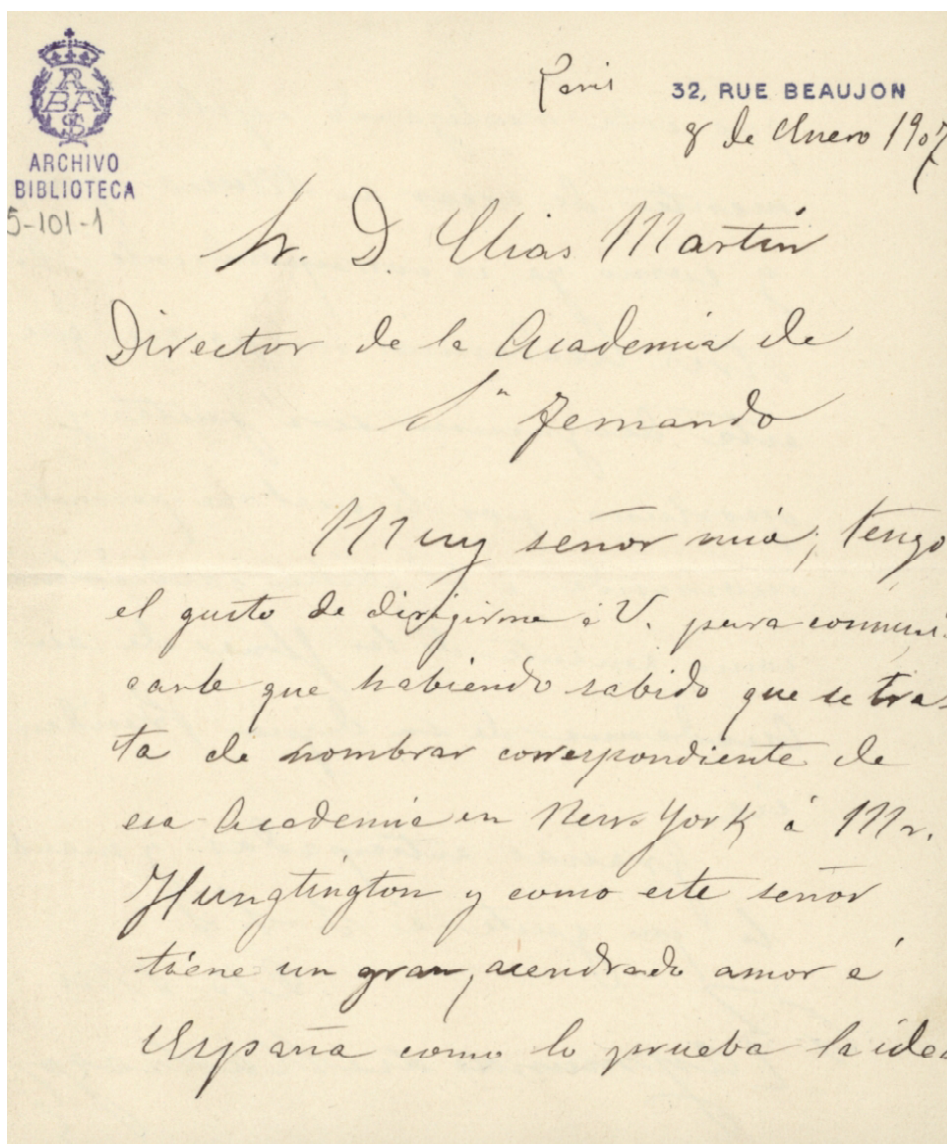 RBASF
ARCHIVO
BIBLIOTECA
5-101-1
Paris 32, RUE BEAUJON
8 de Enero 1907
Sr. D. Elias Martín
Director de la Academia de
Sn Fernando
Muy señor mio; tengo
el gusto de dirigirme á V. para comuni-
carle que habiendo sabido que se tra-
ta de nombrar correspondiente de
esa Academia en New York á Mr.
Hungtington y como este señor
tiene un gran, acendrado amor á
España como lo prueba la idea